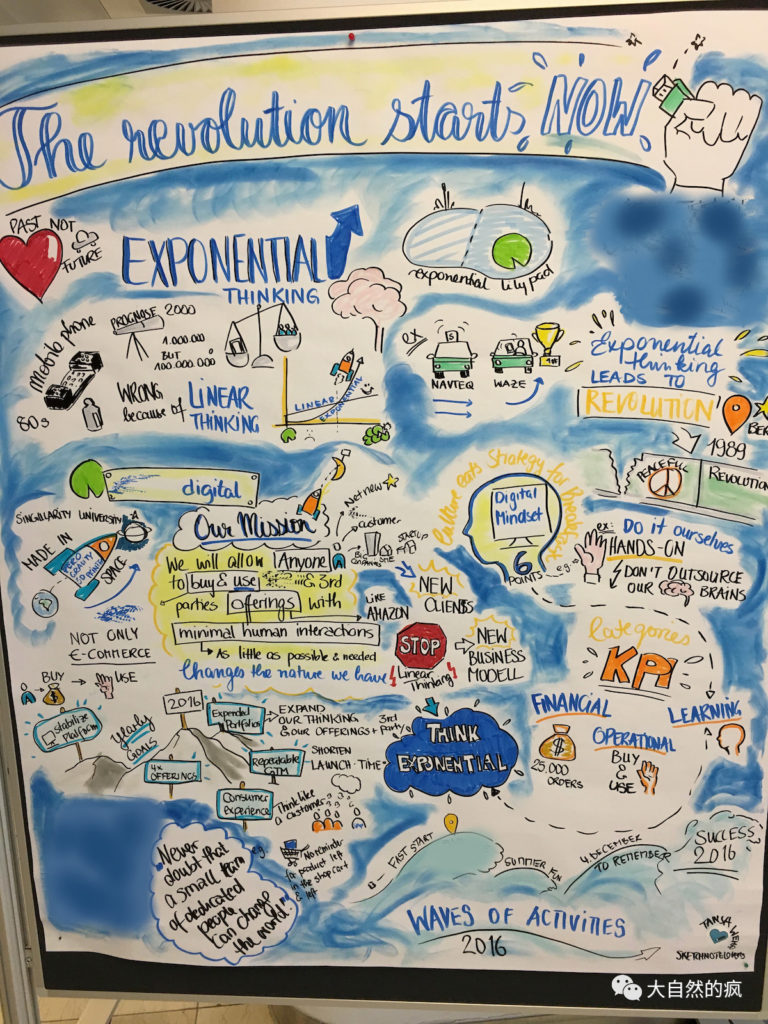 The revolution starts NOW
PAST NOT
FUTURE
EXPONENTIAL
THINKING
exponential lilypad
mobile phone
80s
PROGNOSE 2000
1.000.000
BUT
100.000.000
WRONG
because of
LINEAR
THINKING
LINEAR
EXPONENTIAL
ex
NAVTEQ
WAZE
#1
Exponential
thinking
LEADS TO
REVOLUTION
BER
1989
PEACEFUL
REVOLUTION
digital
SINGULARITY UNIVERSITY
MADE IN
SPACE
ZERO
GRAVITY
3D PRINTER
NOT ONLY
E-COMMERCE
BUY
USE
Our Mission
We will allow Anyone
to buy & use & 3rd
parties offerings with
minimal human interactions
As little as possible & needed
Changes the nature we have
Net new
Customer
BIG
COMPANIES
STARTUP
LIKE
AMAZON
NEW
CLIENTS
STOP
Linear
Thinking
NEW
BUSINESS
MODELL
Culture eats Strategy for Breakfast
Digital
Mindset
6
POINTS
e.g.
ex:
DO it ourselves
HANDS-ON
DON'T OUTSOURCE
OUR BRAINS
Categories
KPI
FINANCIAL
25.000
ORDERS
OPERATIONAL
BUY
&
USE
LEARNING
THINK
EXPONENTIAL
2016
Stabilize
Platform
Yearly
GOALS
4x OFFERINGS
Expanded
Portfolio
EXPAND
OUR THINKING
& OUR OFFERINGS + 3rd
Party
Repeatable
GTM
SHORTEN
LAUNCH-TIME
Consumer
Experience
Think like
a customer
e.g.
No reminder
for product left
in the shop cart
& left
"Never
doubt that
a small team
of dedicated
people
can change
the world."
FAST START
SUMMER FUN
4. DECEMBER
TO REMEMBER
SUCCESS
2016
WAVES OF ACTIVITIES
2016
TANJA
WEHR
SKETCHNOTELOVERS
大自然的疯